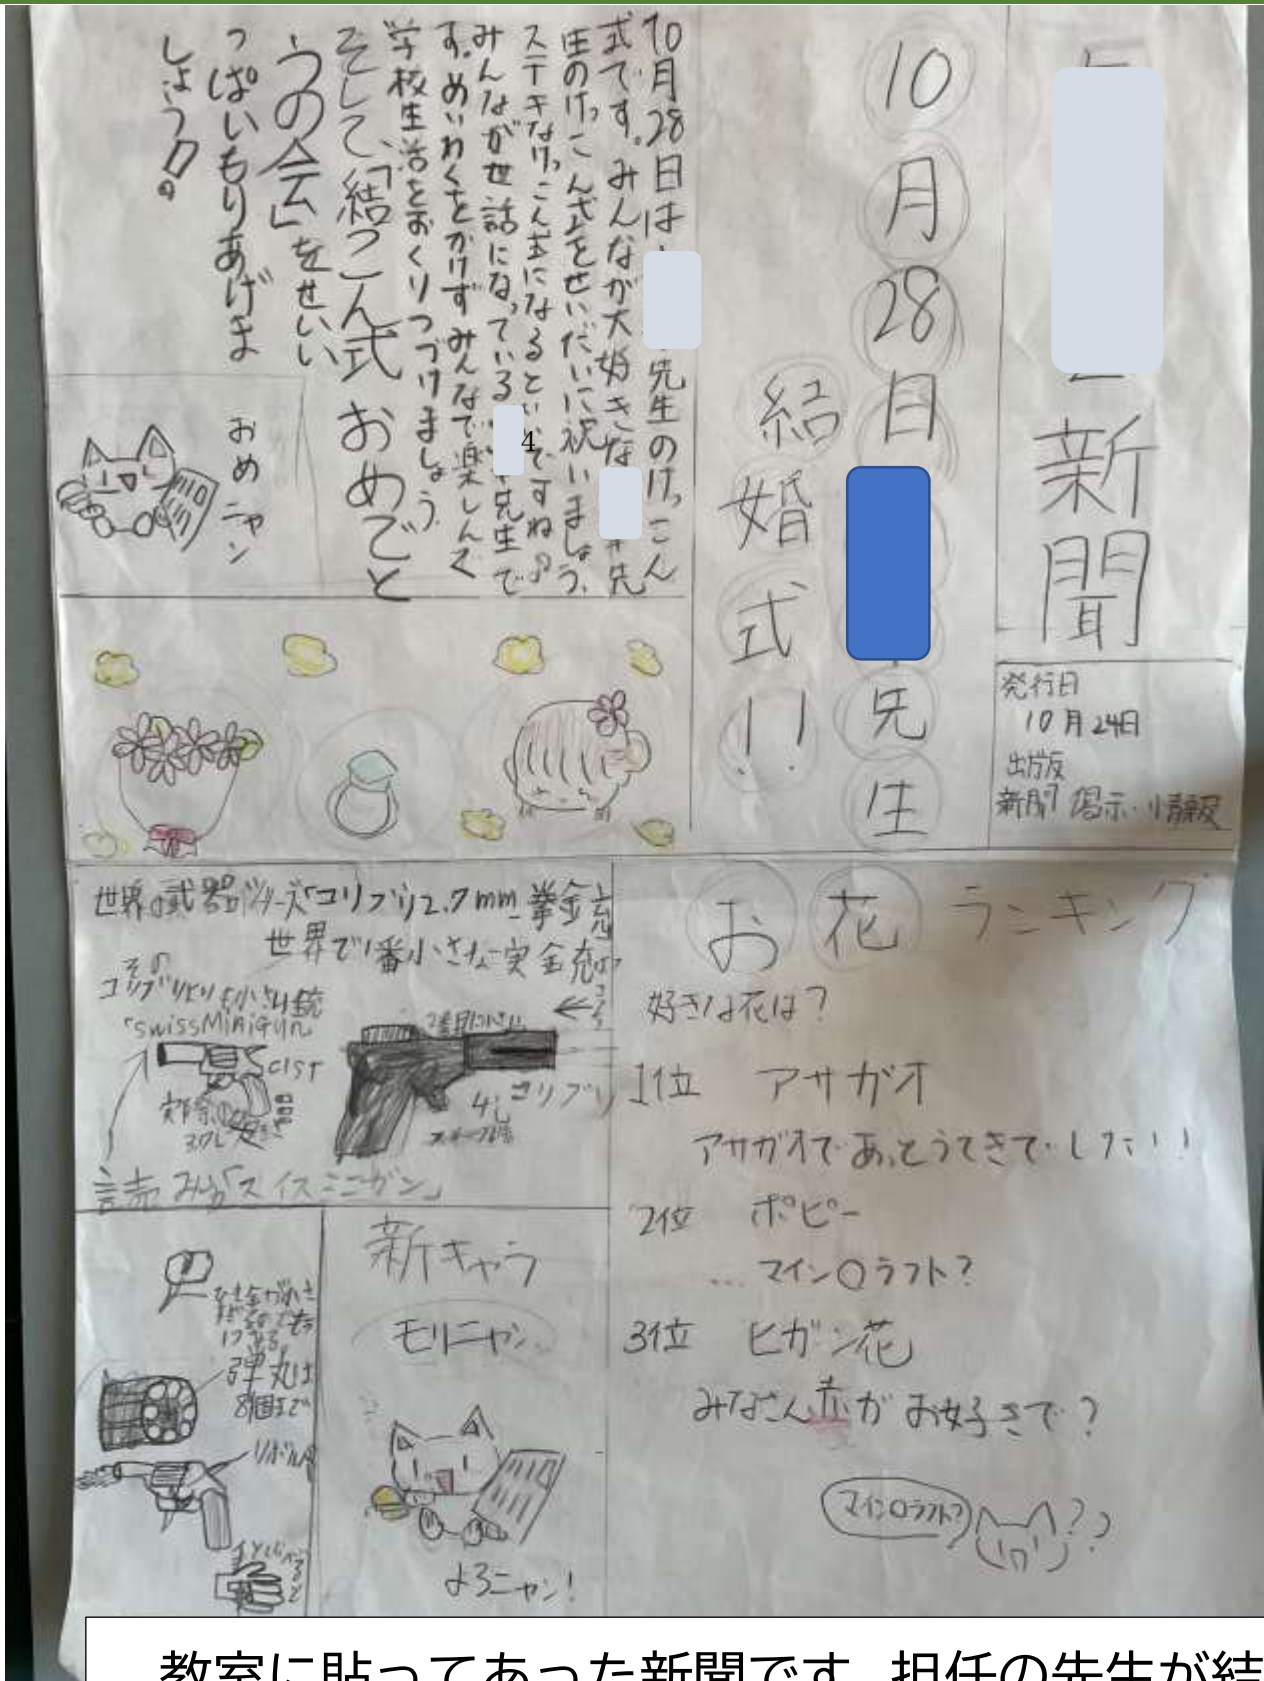 新聞
発行日
10月24日
出版
新聞 掲示・情報
10月28日
先生
結婚式!!
10月28日は
先生のけっこん
式です。みんなが大好きな
先
生のけっこん式をせいだいに祝いましょう。
ステキなけっこん式になるといいですね♪
みんなが世話になっている
先生で
す。めいわくをかけず みんなで楽しんで
学校生活をおくりつづけましょう。
そして、「結こん式 おめでと
うの会」をせいい
っぱいもりあげま
しょう!!。
4
おめニャン
世界の武器シリーズ「コリブリ2.7mm拳銃」
世界で1番小さな実銃は
そのコリブリよりも小さい銃
「SwissMiniGun
2番目に小さい
C1ST
コリブリ
読み「スイスミニガン」
弾丸は
8個まで
新キャラ
モリニャン
よろニャン!
お花ランキング
好きな花は?
1位 アサガオ
アサガオであっとうてきでした!!
2位 ポピー
…マイン〇ラフト?
3位 ヒガン花
みなさん赤がお好きで?
マイン〇ラフト?
??
教室に貼ってあった新聞です。担任の先生が結